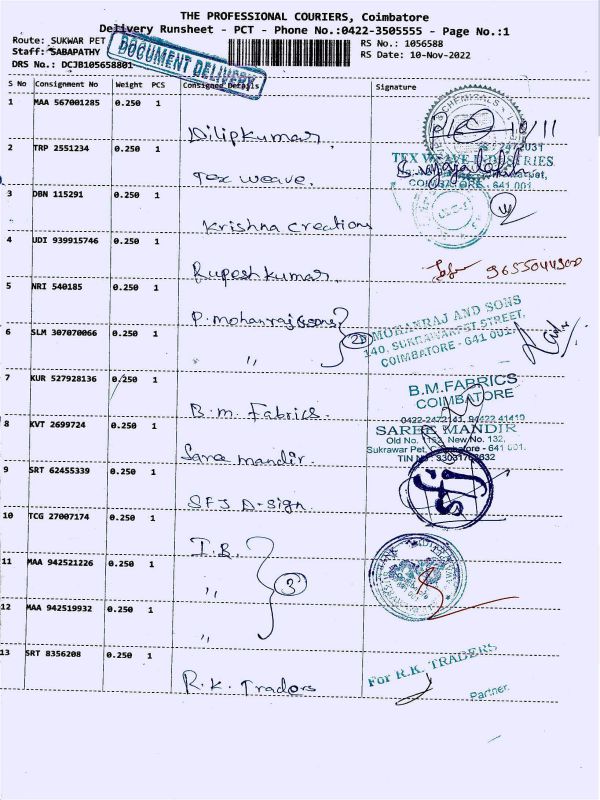 THE PROFESSIONAL COURIERS, Coimbatore
Delivery Runsheet - PCT - Phone No.:0422-3505555 - Page No.:1
Route: SUKWAR PET
Staff: SABAPATHY
DRS No.: DCJB105658801
DOCUMENT DELIVERY
RS No.: 1056588
RS Date: 10-Nov-2022
S No Consignment No Weight PCS Consignee Details Signature
1 MAA 567001285 0.250 1
Dilipkumar.
10/11
2 TRP 2551234 0.250 1
Tex weave.
TEX WEAVE INDUSTRIES
COIMBATORE - 641 001
3 DBN 115291 0.250 1
Krishna Creations
4 UDI 939915746 0.250 1
Rupeshkumar.
5 NRI 540185 0.250 1
P. mohanraj & sons
MOHANRAJ AND SONS
140, SUKRAWARPET STREET,
COIMBATORE - 641 001.
6 SLM 307070066 0.250 1
" " 2
7 KUR 527928136 0.250 1
B.m. Fabrics.
B.M.FABRICS
COIMBATORE
8 KVT 2699724 0.250 1
Saree mandir
SAREE MANDIR
Old No. 1152, New No. 132,
Sukrawar Pet, Coimbatore - 641 001.
9 SRT 62455339 0.250 1
SFJ D-sign.
sfj
10 TCG 27007174 0.250 1
I.B.
11 MAA 942521226 0.250 1
" 3
12 MAA 942519932 0.250 1
"
13 SRT 8356208 0.250 1
R.K. Traders
For R.K. TRADERS
Partner.